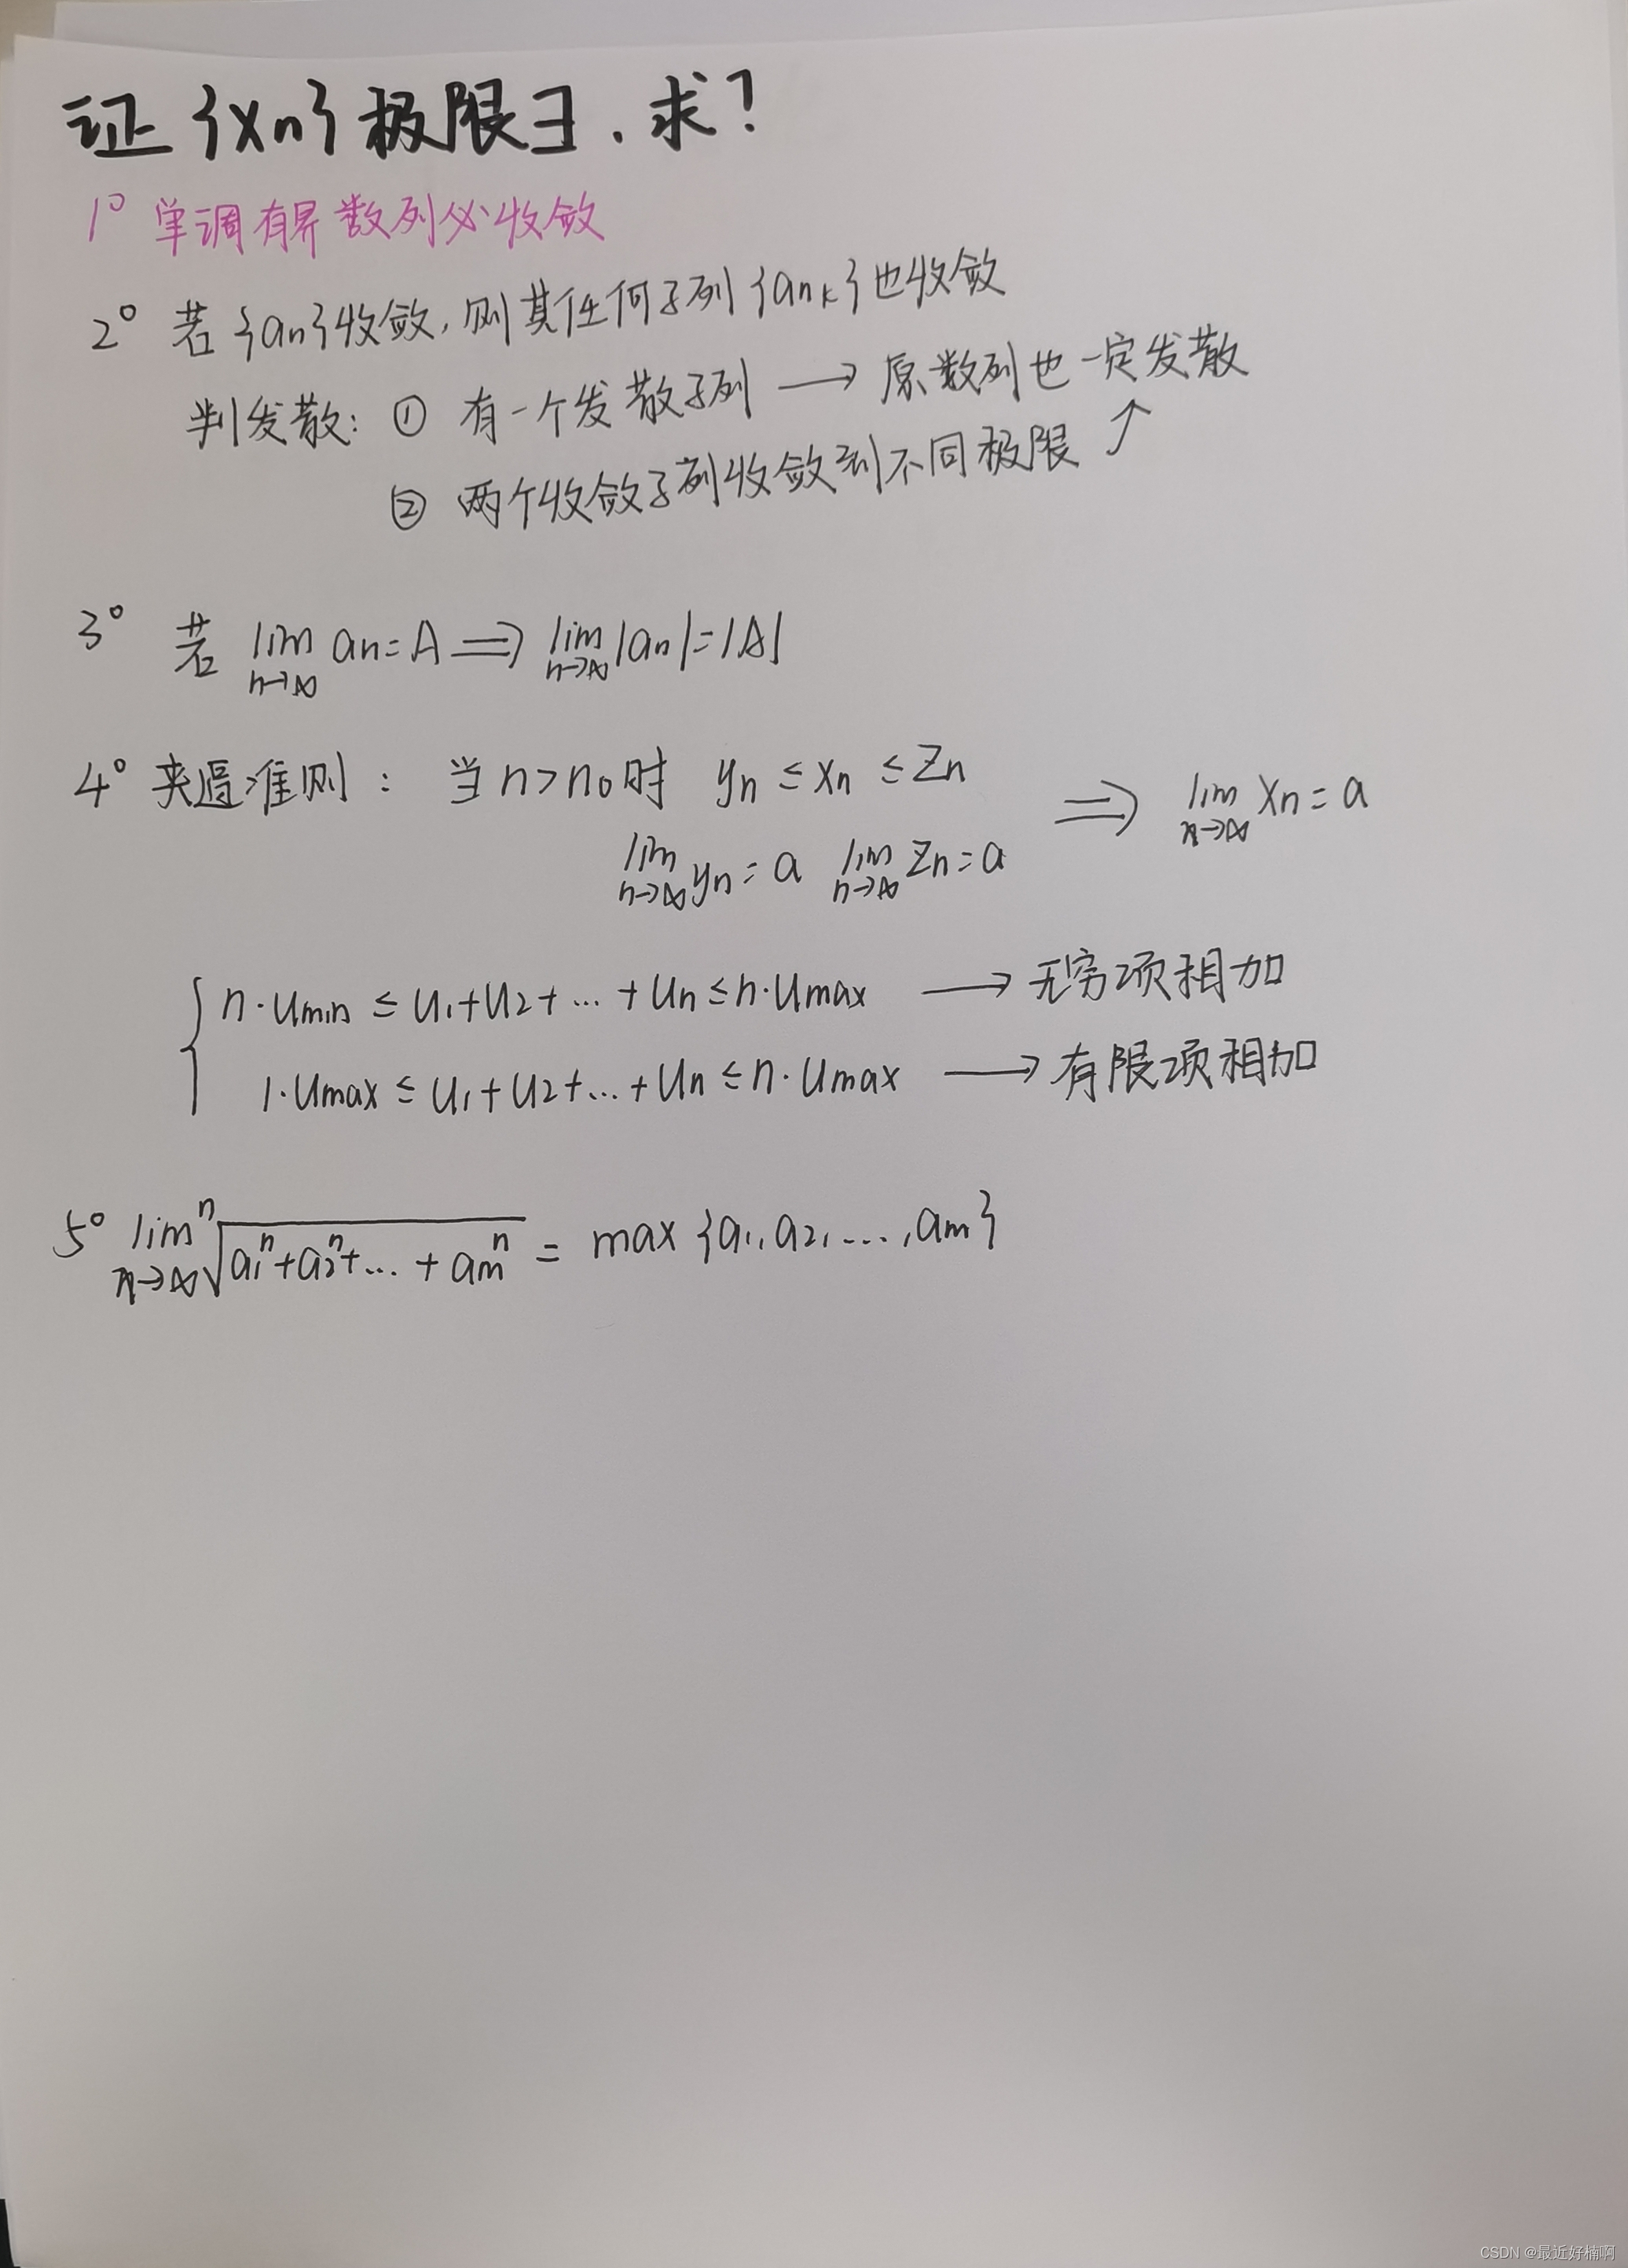 证{xn}极限∃.求?
1° 单调有界数列必收敛
2° 若{an}收敛,则其任何子列{ank}也收敛
判发散: ① 有一个发散子列 → 原数列也一定发散
② 两个收敛子列收敛到不同极限 ↗
3° 若 lim n→∞ an=A ⟹ lim n→∞ |an|=|A|
4° 夹逼准则: 当n>n0时 yn≤xn≤zn ⟹ lim n→∞ xn=a
lim n→∞ yn=a lim n→∞ zn=a
{ n·umin≤u1+u2+…+un≤n·umax → 无穷项相加
1·umax≤u1+u2+…+un≤n·umax → 有限项相加
5° lim n→∞ ⁿ√(a1ⁿ+a2ⁿ+…+amⁿ) = max{a1,a2,…,am}
CSDN @最近好楠啊